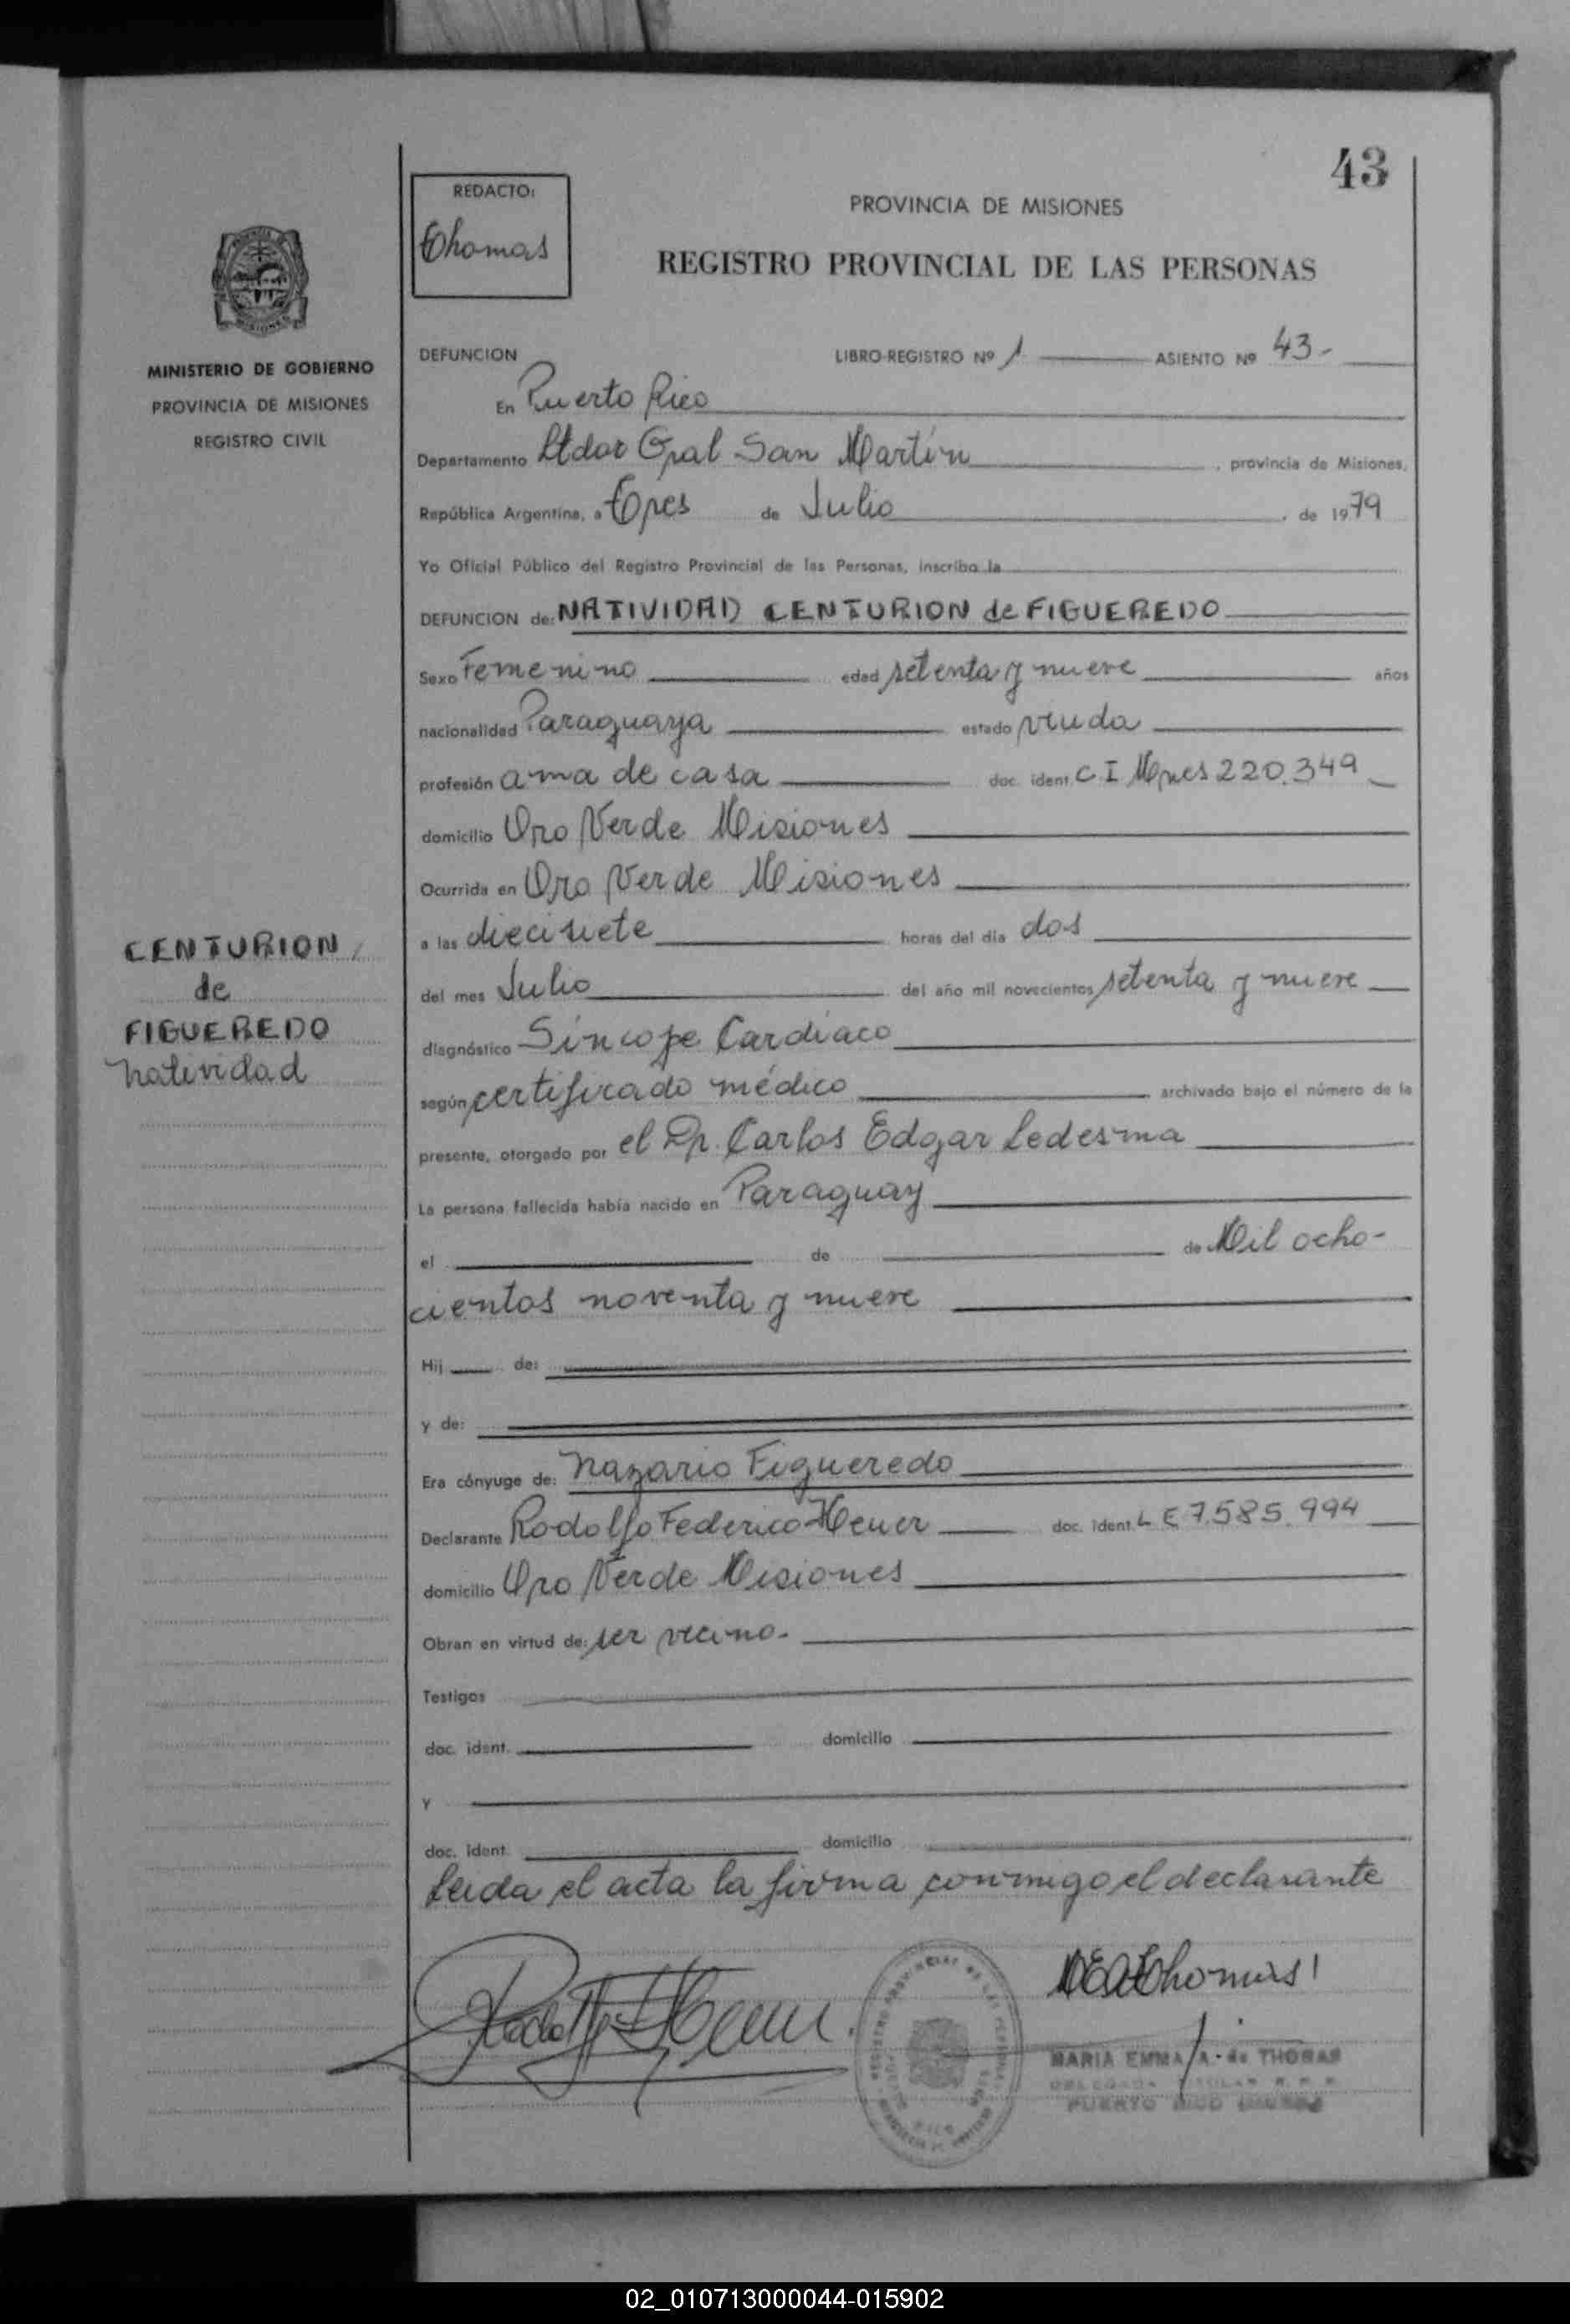 43
REDACTO:
Thomas
PROVINCIA DE MISIONES
REGISTRO PROVINCIAL DE LAS PERSONAS
MINISTERIO DE GOBIERNO
PROVINCIA DE MISIONES
REGISTRO CIVIL
DEFUNCION LIBRO-REGISTRO Nº 1 ASIENTO Nº 43-
En Puerto Rico
Departamento Ltdor Gral San Martín, provincia de Misiones,
República Argentina, a Tres de Julio, de 1979
Yo Oficial Público del Registro Provincial de las Personas, inscribo la
DEFUNCION de: NATIVIDAD CENTURION de FIGUEREDO
Sexo Femenino edad setenta y nueve años
nacionalidad Paraguaya estado viuda
profesión ama de casa doc. ident. C I Mnes 220.349
domicilio Oro Verde Misiones
Ocurrida en Oro Verde Misiones
a las diecisiete horas del día dos
del mes Julio del año mil novecientos setenta y nueve
diagnóstico Síncope Cardíaco
según certificado médico archivado bajo el número de la
presente, otorgado por el Dr. Carlos Edgar Ledesma
La persona fallecida había nacido en Paraguay
el de de Mil ocho-
cientos noventa y nueve
Hij de:
y de:
Era cónyuge de: Nazario Figueredo
Declarante Rodolfo Federico Heuer doc. ident. L E 7.585.994
domicilio Oro Verde Misiones
Obran en virtud de: ser vecino.-
Testigos
doc. ident. domicilio
y
doc. ident. domicilio
Leida el acta la firma conmigo el declarante
CENTURION
de
FIGUEREDO
Natividad
MARIA EMMA A. de THOMAS
PUERTO RICO
02_010713000044-015902